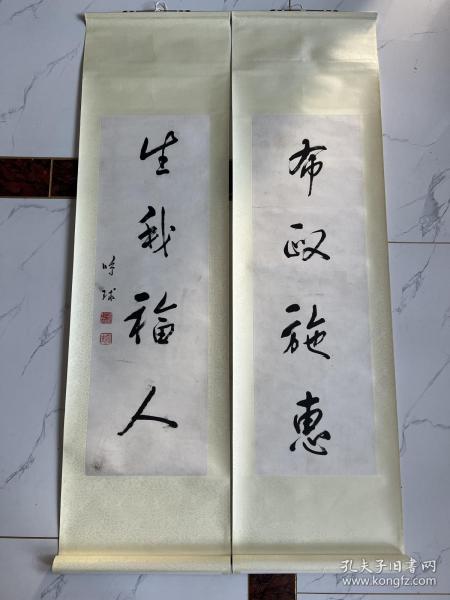 布政施惠
生我福人
時球
孔夫子旧书网
www.kongfz.com